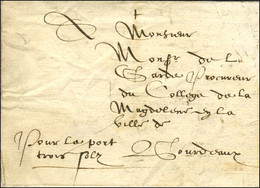 +
Monsieur
Monsr de la
Garde Procureur
du College de la
Magdelene en la
ville de
Bourdeaux
Pour le port
trois solz